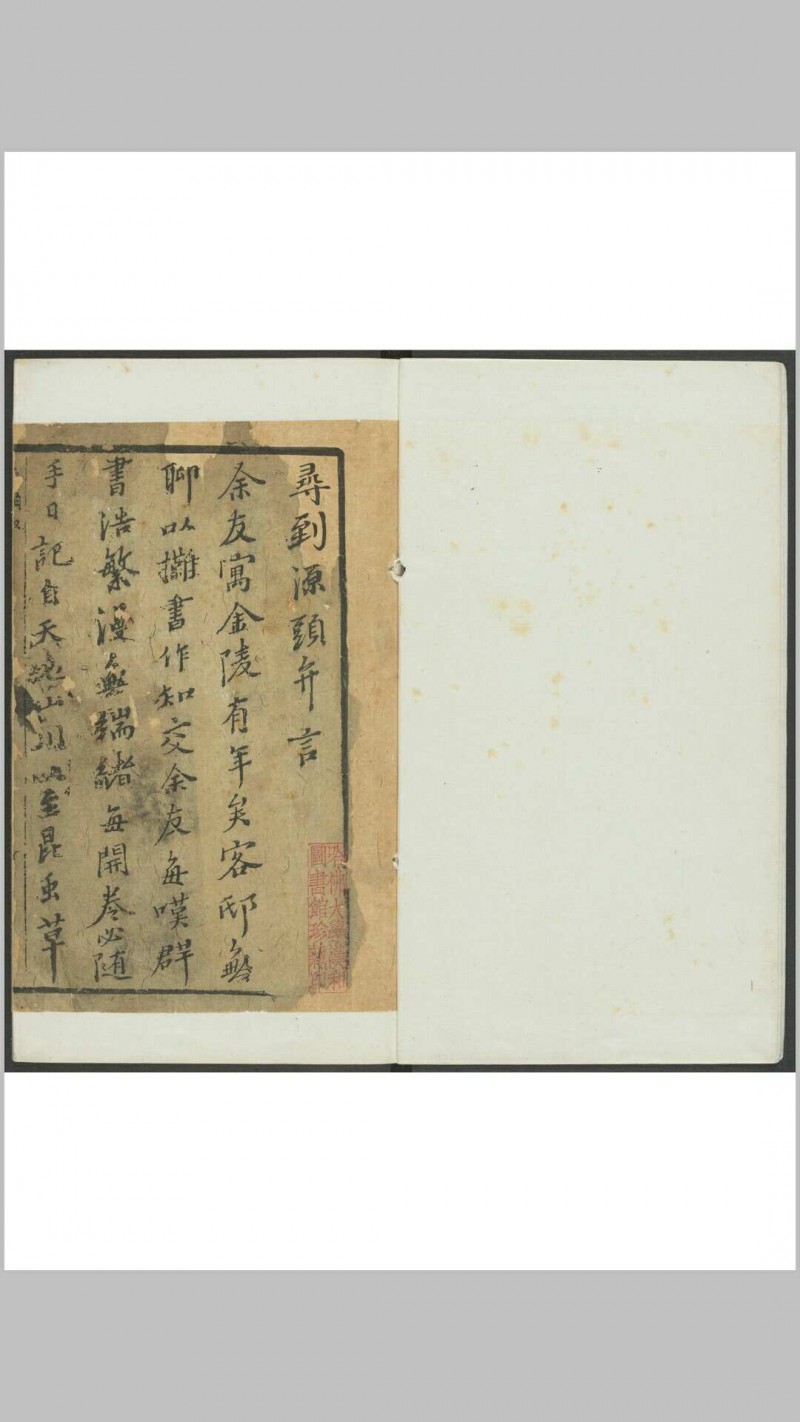 尋到源頭弁言
余友寓金陵有年矣客邸無
聊以攤書作知交余友每嘆群
書浩繁漫無端緒每開卷必隨
手日記自天地山川以至昆虫草
哈佛大學漢和
圖書館珍藏印